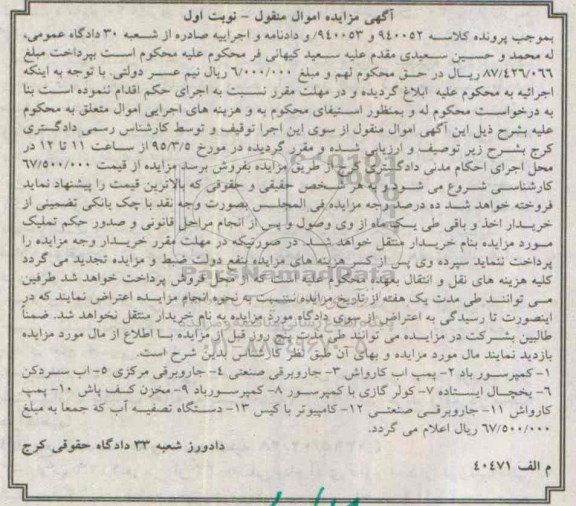 آگهی مزایده اموال منقول - نوبت اول
بموجب پرونده کلاسه ۹۴۰۰۵۲ و ۹۴۰۰۵۳/ و دادنامه و اجراییه صادره از شعبه ۳۰ دادگاه عمومی،
له محمد و حسین سعیدی مقدم علیه سعید کیهانی فر محکوم علیه محکوم است بپرداخت مبلغ
۸۷/۴۲۶/۰۶۶ ریال در حق محکوم لهم و مبلغ ۶/۰۰۰/۰۰۰ ریال نیم عسر دولتی. با توجه به اینکه
اجرائیه به محکوم علیه ابلاغ گردیده و در مهلت مقرر نسبت به اجرای حکم اقدام ننموده است بنا
به درخواست محکوم له و بمنظور استیفای محکوم به و هزینه های اجرایی اموال متعلق به محکوم
علیه بشرح ذیل این آگهی اموال منقول از سوی این اجرا توقیف و توسط کارشناس رسمی دادگستری
کرج بشرح زیر توصیف و ارزیابی شده و مقرر گردیده در مورخ ۹۵/۳/۵ از ساعت ۱۱ تا ۱۲ در
محل اجرای احکام مدنی دادگستری کرج از طریق مزایده بفروش برسد مزایده از قیمت ۶۷/۵۰۰/۰۰۰
کارشناسی شروع می شود و به هر شخص حقیقی و حقوقی که بالاترین قیمت را پیشنهاد نماید
فروخته خواهد شد ده درصد وجه مزایده فی المجلس بصورت وجه نقد با چک بانکی تضمینی از
خریدار اخذ و باقی طی یک ماه از وی وصول و پس از انجام مراحل قانونی و صدور حکم تملیک
مورد مزایده بنام خریدار منتقل خواهد شد. در صورتیکه در مهلت مقرر خریدار وجه مزایده را
پرداخت ننماید سپرده وی پس از کسر هزینه های مزایده بنفع دولت ضبط و مزایده تجدید می گردد
کلیه هزینه های نقل و انتقال بعهده محکوم علیه است که از محل فروش پرداخت خواهد شد طرفین
می توانند طی مدت یک هفته از تاریخ مزایده نسبت به نحوه انجام مزایده اعتراض نمایند که در
اینصورت تا رسیدگی به اعتراض از سوی دادگاه مورد مزایده به نام خریدار منتقل نخواهد شد. ضمناً
طالبین بشرکت در مزایده می توانند طی مدت پنج روز قبل از مزایده با اطلاع از مال مورد مزایده
بازدید نمایند مال مورد مزایده و بهای آن طبق نظر کارشناس بدین شرح است.
۱- کمپرسور باد ۲- پمپ اب کارواش ۳- جاروبرقی صنعتی ۴- جاروبرقی مرکزی ۵- اب سردکن
۶- یخچال ایستاده ۷- کولر گازی با کمپرسور ۸- کمپرسورباد ۹- مخزن کف پاش ۱۰- پمپ
کارواش ۱۱- جاروبرقی صنعتی ۱۲- کامپیوتر با کیس ۱۳- دستگاه تصفیه آب که جمعا به مبلغ
۶۷/۵۰۰/۰۰۰ ریال اعلام می گردد.
دادورز شعبه ۳۳ دادگاه حقوقی کرج
م الف ۴۰۴۷۱